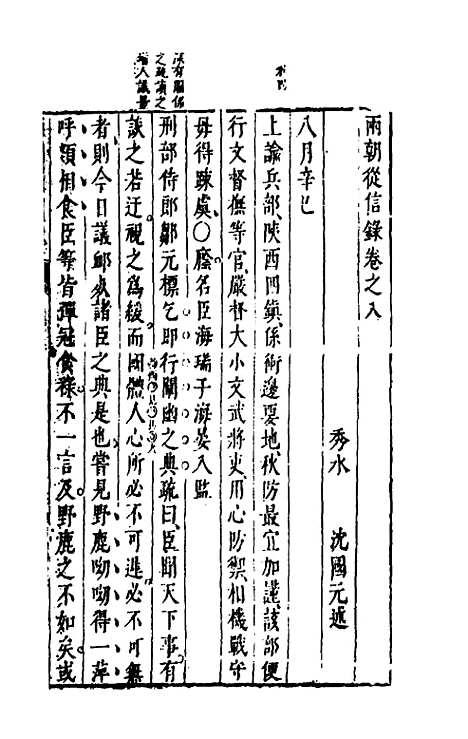 兩朝從信錄卷之八
秀水 沈國元述
八月辛巳
上諭兵部陝西四鎮係衝邊要地秋防最宜加謹該部便
行文督撫等官嚴督大小文武將吏用心防禦相機戰守
毋得踈虞○廕名臣海瑞子海晏入監
有關係
之疏讀之
增人識量
刑部侍郎鄒元標乞即行闡幽之典疏曰臣聞天下事有
談之若迂視之爲緩而國體人心所必不可遲必不可無
者則今日議卹諸臣之典是也嘗見野鹿呦呦得一苹
呼類相食臣等皆彈冠食祿不一言及野鹿之不如矣或